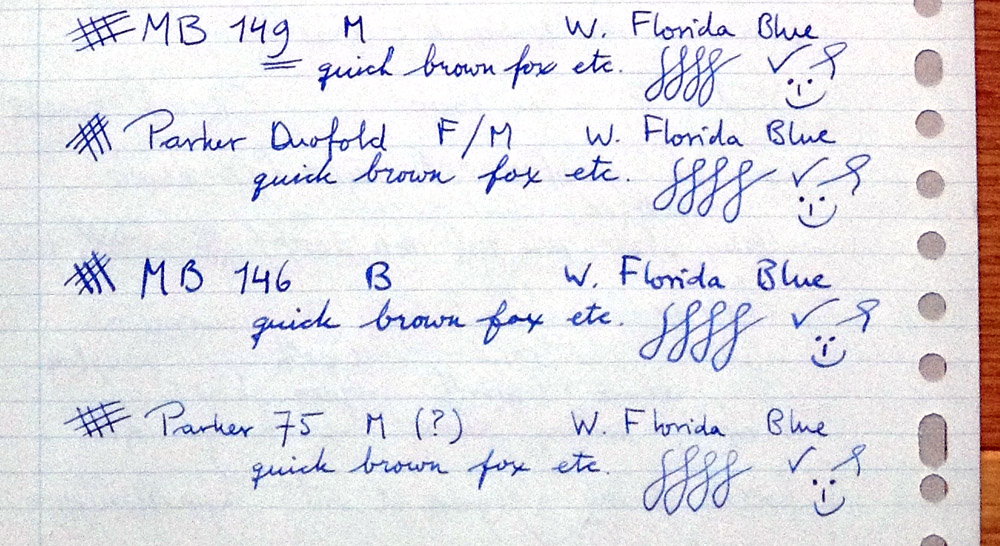 MB 149 M W. Florida Blue
quick brown fox etc.
Parker Duofold F/M W. Florida Blue
quick brown fox etc.
MB 146 B W. Florida Blue
quick brown fox etc.
Parker 75 M (?) W. Florida Blue
quick brown fox etc.